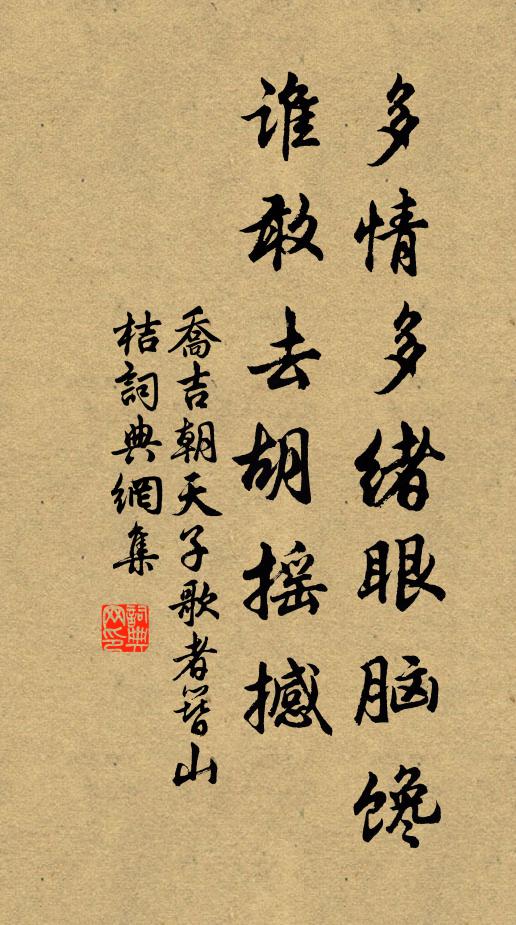 多情多绪眼脑馋
谁敢去胡摇撼
喬吉朝天子歌者簪山
桔詞典網集
詞典網印